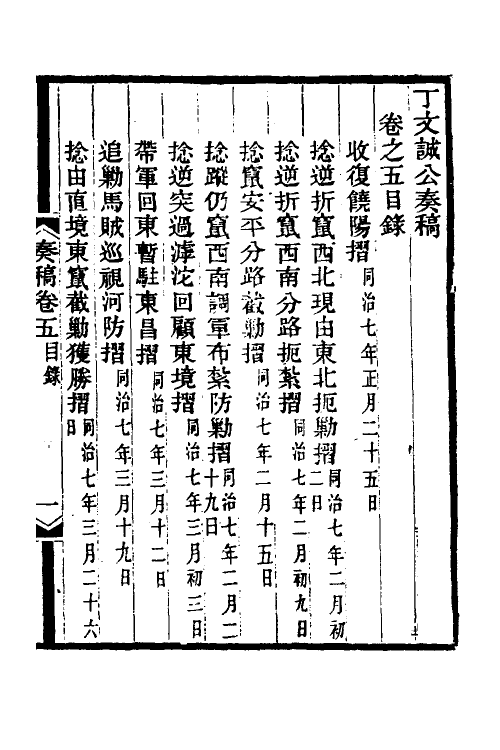 丁文誠公奏稿
卷之五目錄
收復饒陽摺同治七年正月二十五日
捻逆折竄西北現由東北扼勦摺同治七年二月初二日
捻逆折竄西南分路扼紮摺同治七年二月初九日
捻竄安平分路截勦摺同治七年二月十五日
捻蹤仍竄西南調軍布紮防勦摺同治七年二月二十九日
捻逆突過滹沱回顧東境摺同治七年三月初三日
帶軍回東暫駐東昌摺同治七年三月十二日
追勦馬賊巡視河防摺同治七年三月十九日
捻由直境東竄截勦獲勝摺同治七年三月二十六日
奏稿卷五目錄 一